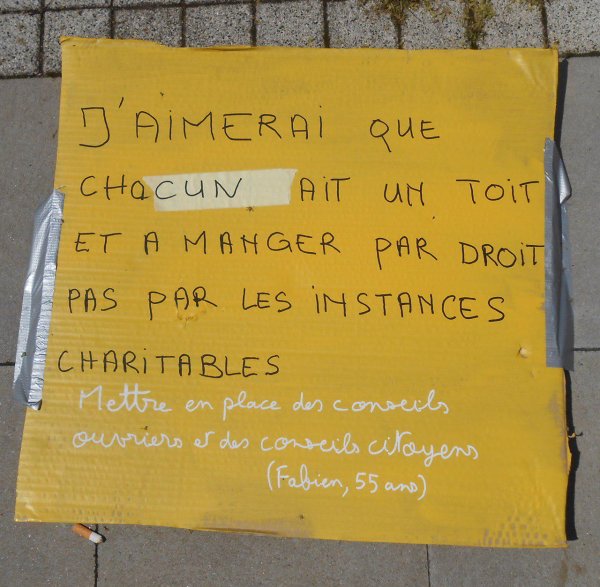 J'AIMERAI QUE
CHACUN AIT UN TOIT
ET A MANGER PAR DROIT
PAS PAR LES INSTANCES
CHARITABLES
Mettre en place des conseils
ouvriers et des conseils citoyens
(Fabien, 55 ans)